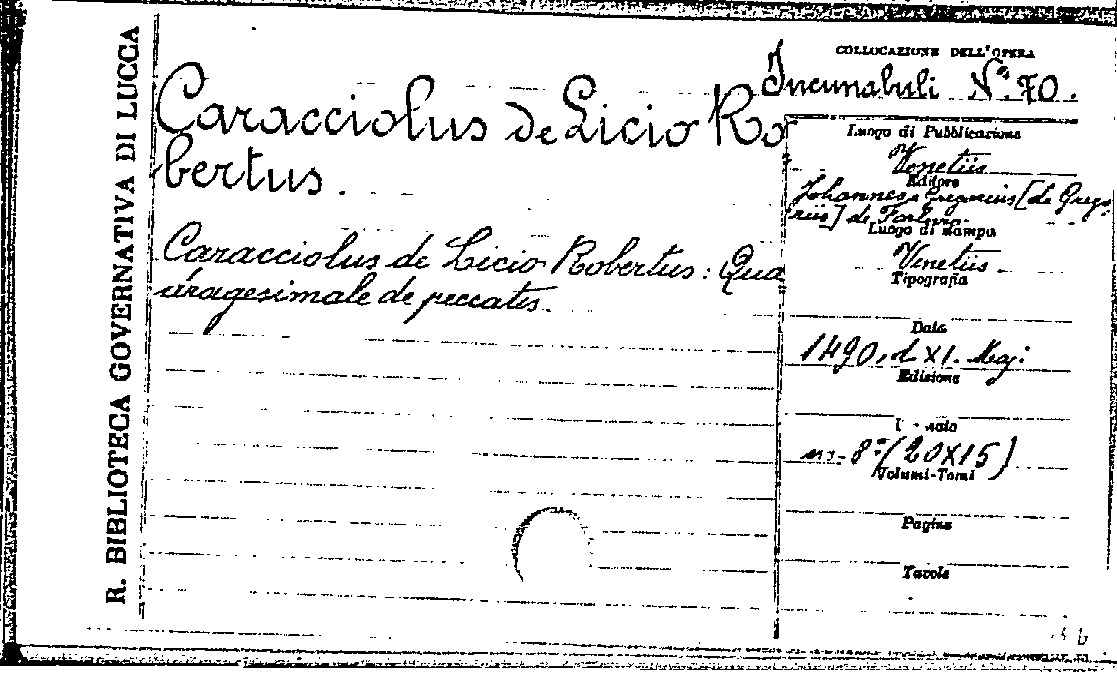 R. BIBLIOTECA GOVERNATIVA DI LUCCA
Caracciolus de Licio Ro
bertus.
Caracciolus de Licio Robertus: Qua
dragesimale de peccatis.
COLLOCAZIONE DELL'OPERA
Incunabuli N.° 70.
Luogo di Pubblicazione
Venetiis
Editore
Johannes e Gregorius [de Grego
riis] de Forlivio.
Luogo di stampa
Venetiis.
Tipografia
Data
1490, d. XI. Maj.
Edizione
in-8° (20X15)
Volumi-Tomi
Pagine
Tavole